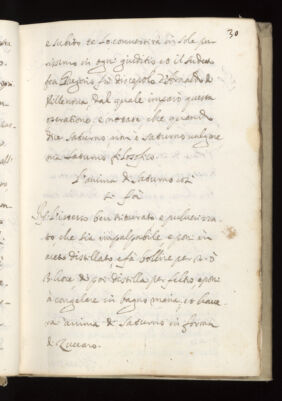 30
e subito te lo convertirà in sole pu-
rissimo in ogni giuditio et il sudeto
fra fu discepolo di Arnaldo di
Villanova, dal quale imparò questa
operatione e notate che quando
dice Saturno, non è Saturno volgare
ma Saturno filosofico.
L'anima di Saturno
si fà
l'istesso ben triturato e pulueriza-
to che sia impalpabile e poni in
aceto distillato, e fà bollire per
hore di poi distilla per feltro e poni
à congelare in bagno maria, et haue-
rai l'anima di Saturno in forma
di Zuccaro.